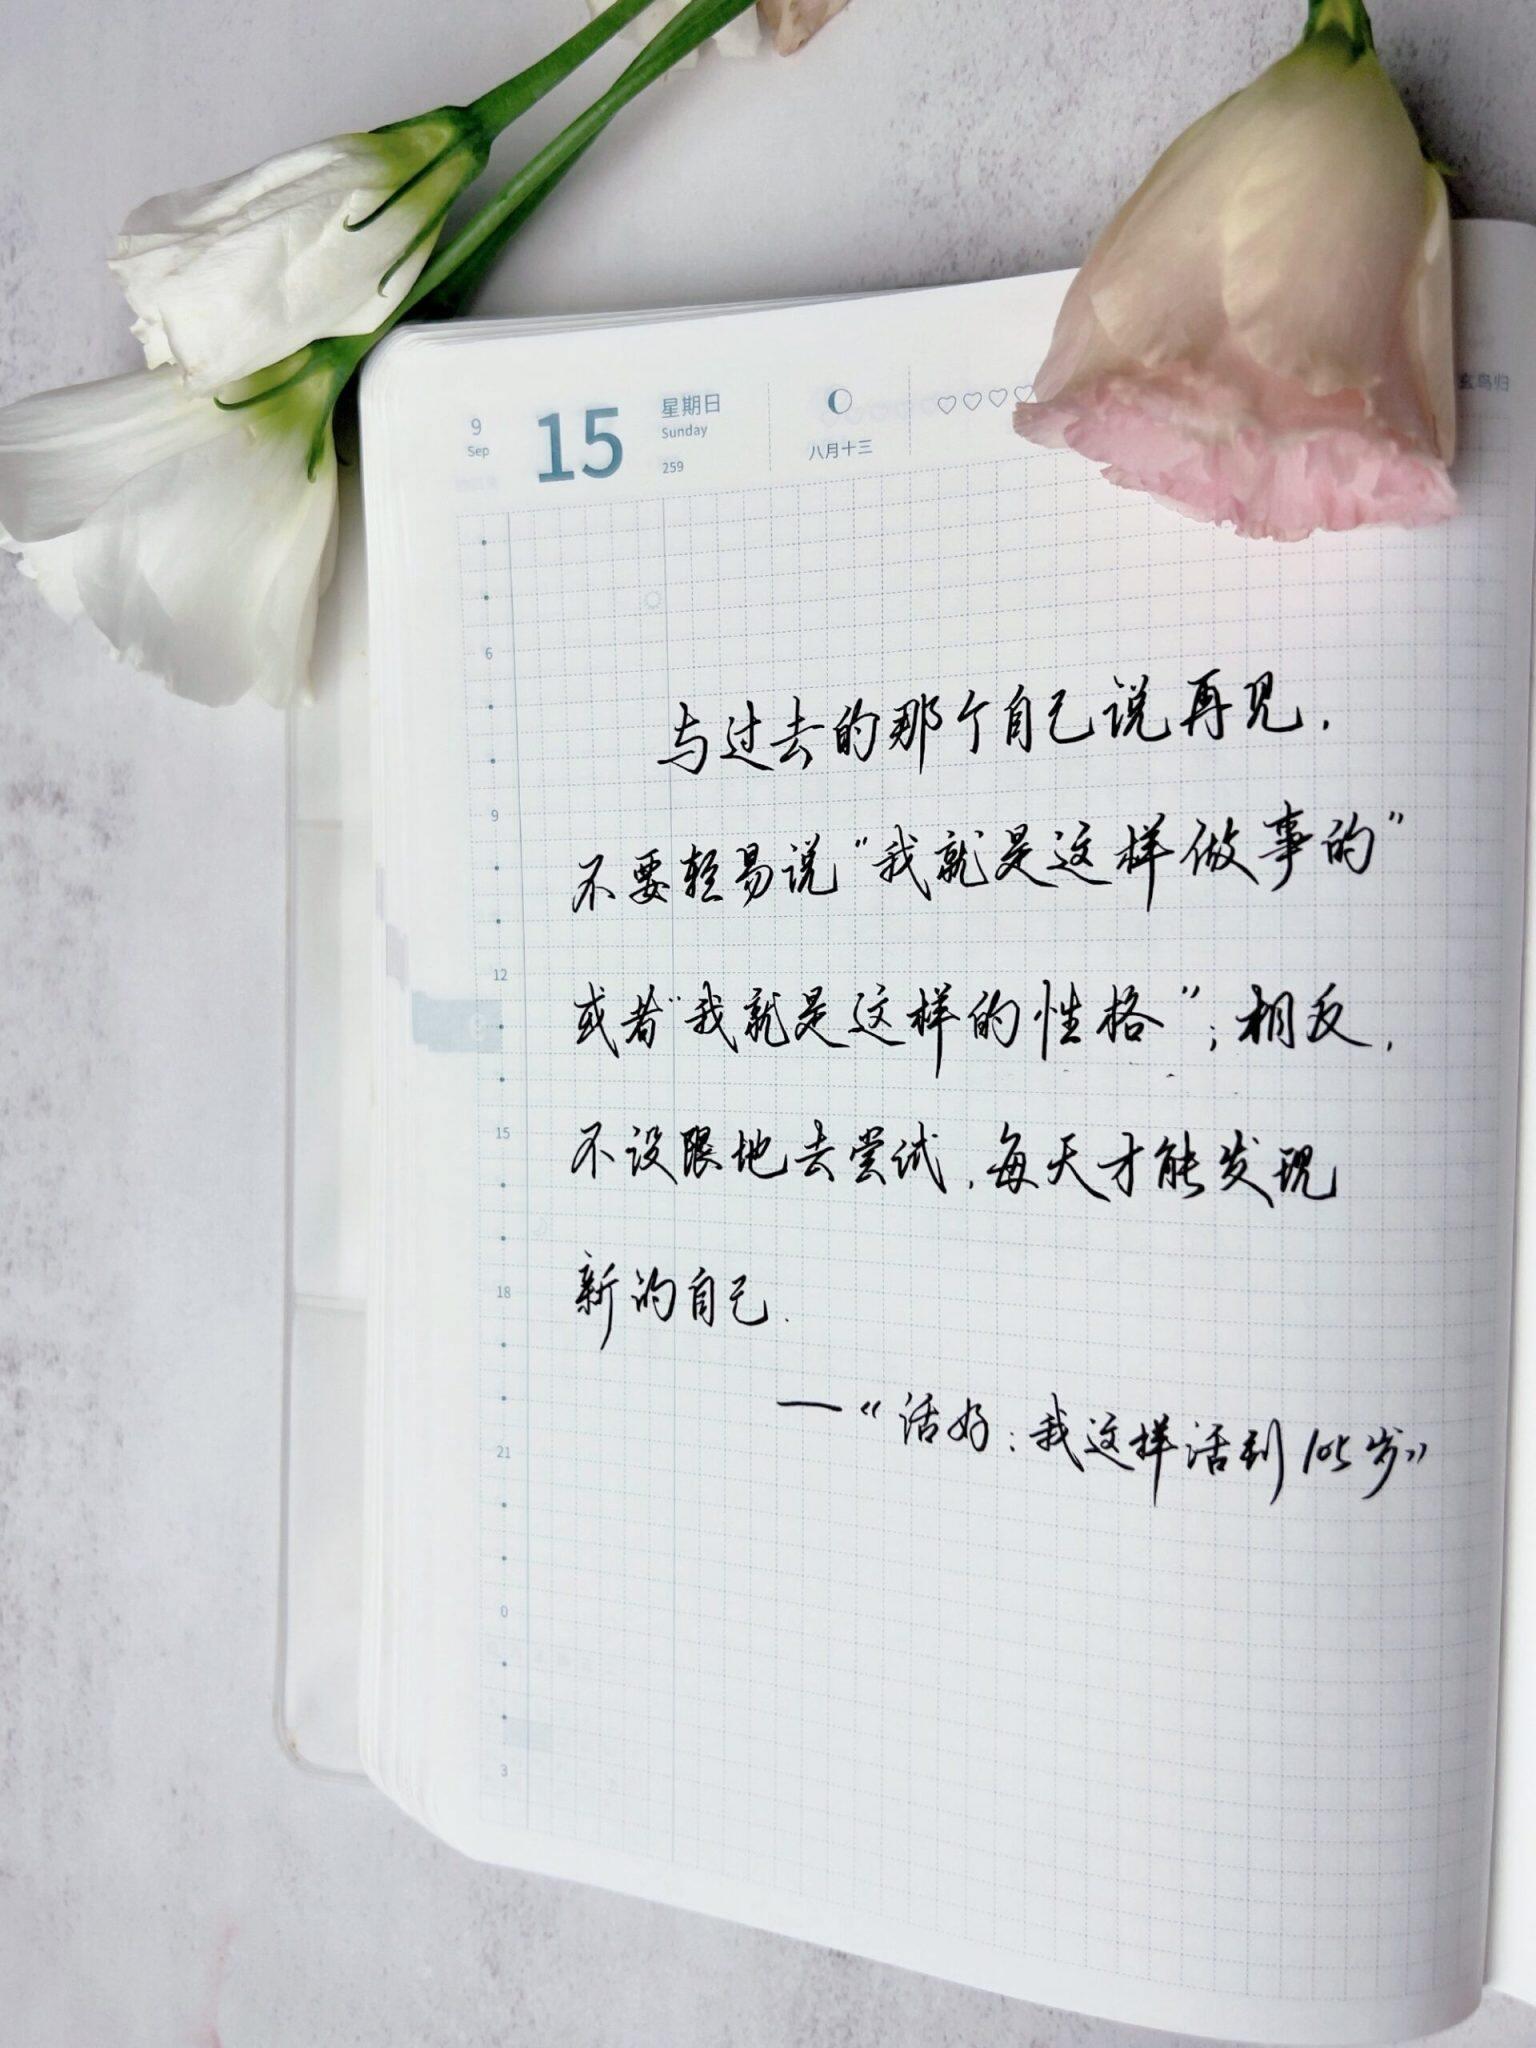 9
Sep
15
星期日
Sunday
259
八月十三
玄鸟归
6
9
12
15
18
21
0
3
与过去的那个自己说再见，
不要轻易说“我就是这样做事的”
或者“我就是这样的性格”；相反，
不设限地去尝试，每天才能发现
新的自己.
—《活好：我这样活到105岁》